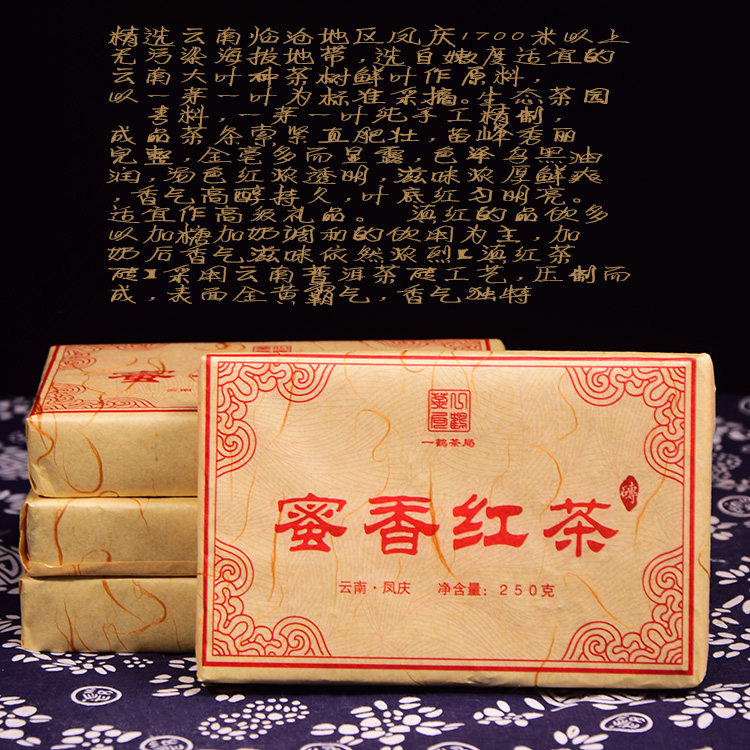 精选云南临沧地区凤庆1700米以上
无污染海拔地带,选自嫩度适宜的
云南大叶种茶树鲜叶作原料,
以一芽一叶为标准采摘。生态茶园
料,一芽一叶纯手工精制,
成品茶条索紧直肥壮,苗峰秀丽
完整,金毫多而显露,色泽乌黑油
润,汤色红浓透明,滋味浓厚鲜爽
,香气高醇持久,叶底红匀明亮。
适宜作高级礼品。 滇红的品饮多
以加糖加奶调和的饮用为主,加
奶后香气滋味依然浓烈。滇红茶
砖。采用云南普洱茶砖工艺,压制而
成,表面金黄霸气,香气独特
蜜
一鹤茶局
蜜香红茶
砖
云南·凤庆 净含量:250克